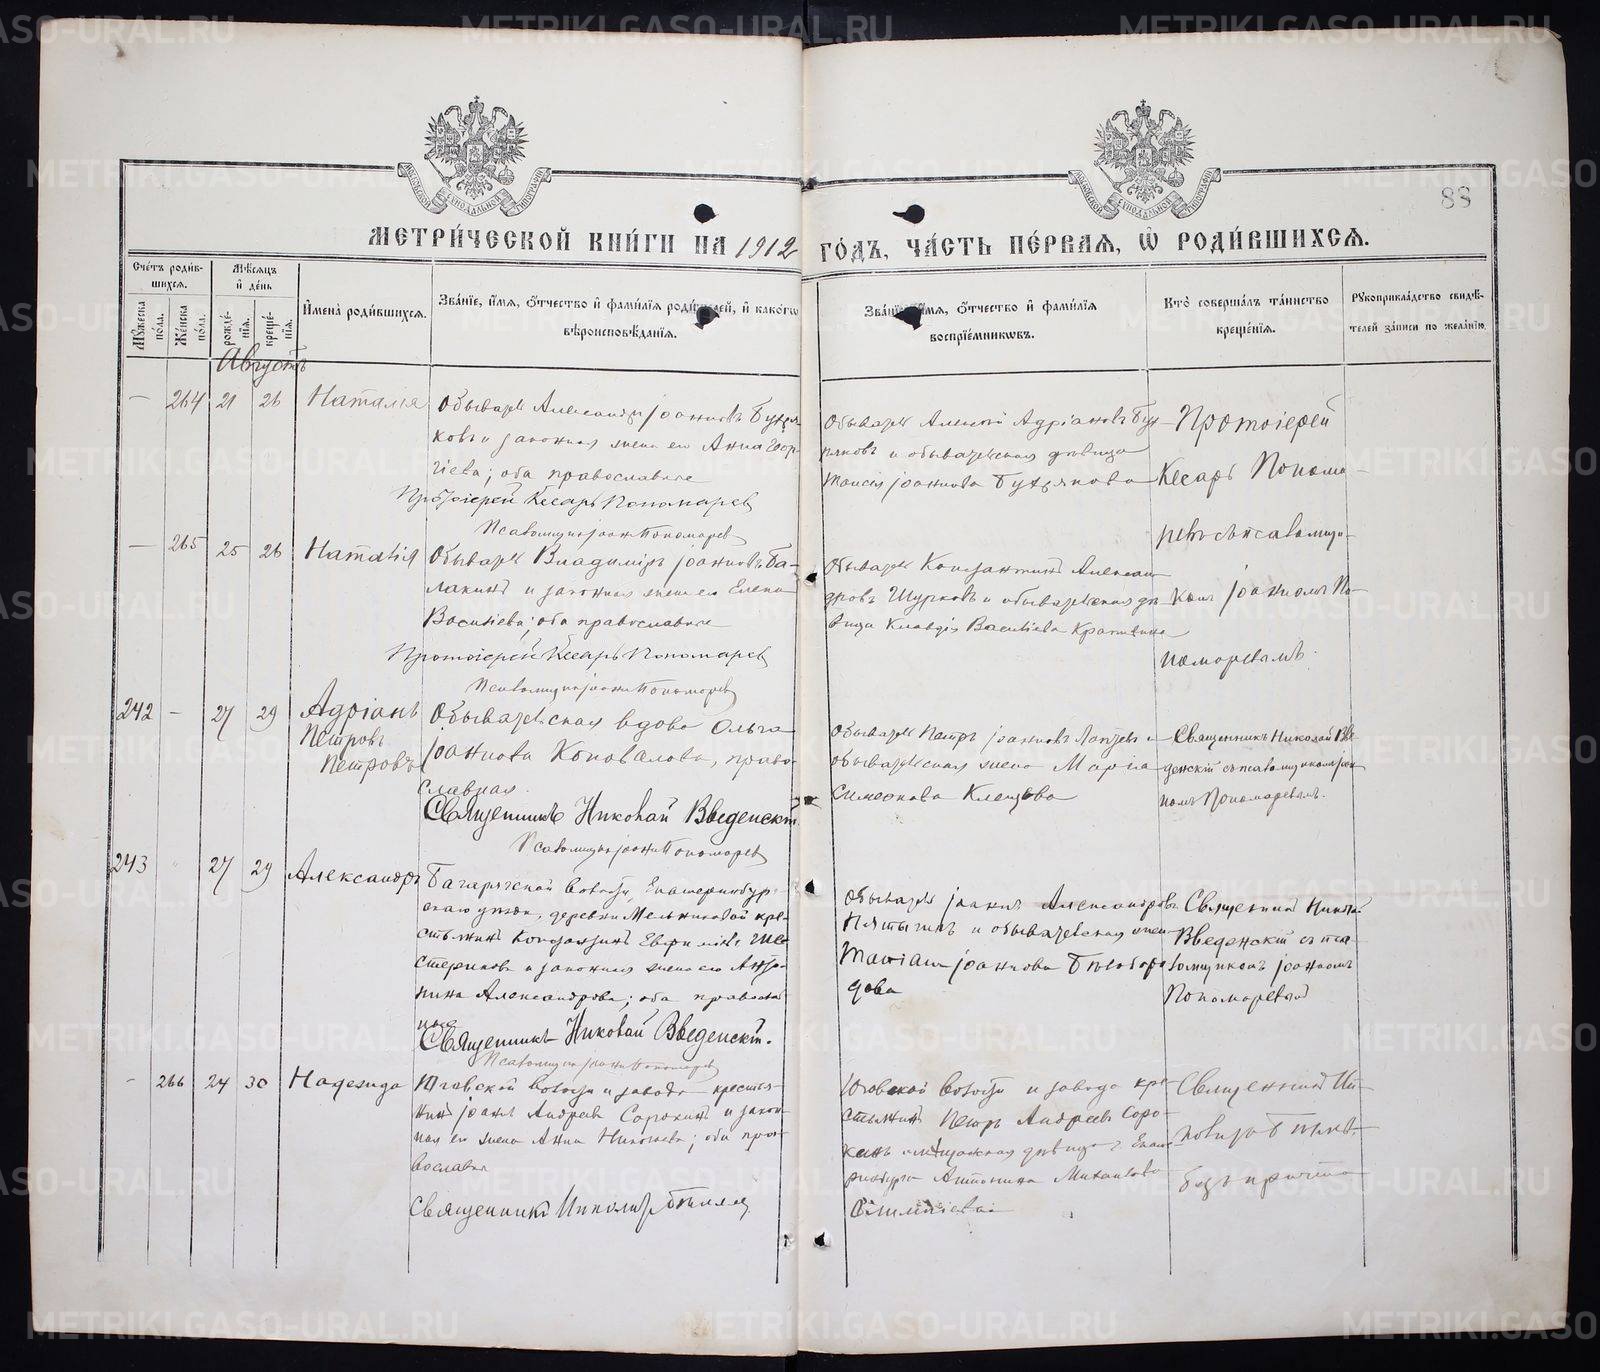 МЕТРИ́ЧЕСКОЙ КНИ́ГИ НА 1912 ГО́ДЪ, ЧА́СТЬ ПЕ́РВАЯ, Ѡ РОДИ́ВШИХСЯ.
88
Сче́тъ роди́в-
шихся.
Му́жеска пола.
Же́нска пола.
Мѣ́сяцъ
и де́нь
рожде́нія.
креще́нія.
И́мена роди́вшихся.
Зва́ніе, и́мя, о́тчество и фами́лія роди́телей, и како́гѡ
вѣроисповѣ́данія.
Зва́ніе, и́мя, о́тчество и фами́лія
воспріе́мникѡвъ.
Кто̀ соверша́лъ та́инство
креще́нія.
Рукоприкла́дство свидѣ́-
телей за́писи по жела́нію.
Августъ
— 264 21 26 Наталія
Обыватель Александръ Іоанновъ
ковъ и законная жена его Анна Геор-
гіева; оба православные
Протоіерей Кесарь Пономаревъ
Псаломщикъ Іоаннъ Пономаревъ
Обыватель Алексей Адріановъ
и обывательская дѣвица
Таисія Іоаннова
Протоіерей
Кесарь Понома-
ревъ съ псаломщи-
комъ Іоанномъ По-
номаревымъ.
— 265 25 26 Наталія
Обыватель Владиміръ Іоанновъ Ба-
лакинъ и законная жена его Елена
Васильева; оба православные
Протоіерей Кесарь Пономаревъ
Псаломщикъ Іоаннъ Пономаревъ
Обыватель Константинъ Алексан-
дровъ Шурковъ и обывательская дѣ-
вица Клавдія Васильева
242 — 27 29 Адріанъ
Петровъ
Петровъ
Обывательская вдова Ольга
Іоаннова Коновалова, право-
славная.
Священникъ Николай Введенскій
Псаломщикъ Іоаннъ Пономаревъ
Обыватель Петръ Іоанновъ Лаптевъ и
обывательская жена Марія
Симеонова Клещева
Священникъ Николай Вве-
денскій съ псаломщикомъ Іоан-
номъ Пономаревымъ.
243 27 29 Александръ
Багарякской волости, Екатеринбург-
скаго уѣзда, деревни Мельниковой кре-
стьянинъ Константинъ Шес-
териковъ и законная жена его Анто-
нина Александрова; оба православ-
ные
Священникъ Николай Введенскій.
Псаломщикъ Іоаннъ Пономаревъ
Обыватель Іоаннъ Александровъ
Пятыгинъ и обывательская жена
Таисія Іоаннова Бѣлоборо-
дова
Священникъ Николай
Введенскій съ пса-
ломщикомъ Іоанномъ
Пономаревымъ
— 266 24 30 Надежда
Юговской волости и завода крестья-
нинъ Іоаннъ Андреевъ Сорокинъ и закон-
ная его жена Анна Николаева; оба пра-
вославные
Священникъ
Юговской волости и завода кре-
стьянинъ Петръ Андреевъ Соро-
кинъ и мѣщанская дѣвица г. Екате-
ринбурга Антонина Михайлова
Священникъ
безъ причта